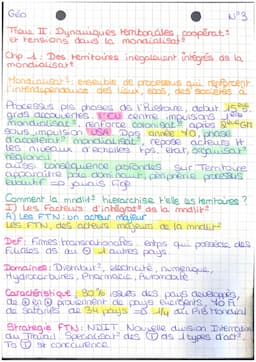 Géo N°3
Thème II : Dynamiques territoriales, coopérat°
et tensions dans la mondialisat°
Chp 1 : Des territoires inégalement intégrés ds la
mondialisat°
Mondialisat° : ensemble de processus qui renforcent
l'interdépendance des lieux, des sociétés à
Processus pls phases de l'histoire, début 15e
gds découvertes. centre impulsion
mondialisat°, renforce colonisat° après
sous impulsion USA. Dps année 90, phase
d'accélérat° mondialisat°, repose acteurs et
les niveaux d'échelles tps, état, organisat°
régional
aussi conséquence profondes sur Territoire
apparaître pole dominant, périphérie processus
évolutif → jamais figé
Comment la mndlit° hiérarchise t'elle les territoires ?
I) Les Facteurs d'intégrat° de la mndlit°
A) Les FTN : un acteur majeur
Les FTN, des acteurs majeurs de la mndlit°
Def : Firmes transnationales : entrps qui possède des
Filiales ds au autres pays
Domaines : Distribut°, électricité, numérique,
Hydrocarbures, Pharmacie, Automobile
Caractéristique : 80% issues des pays développés,
de + en + proviennent de pays émergents, 40
de salariés de 34 pays 1/4 du PIB Mondial
Stratégie FTN : NDIT. Nouvelle division Internation
du Travail Spécialisat° des T ds 1 types d'act°.
Ts T st concurrence